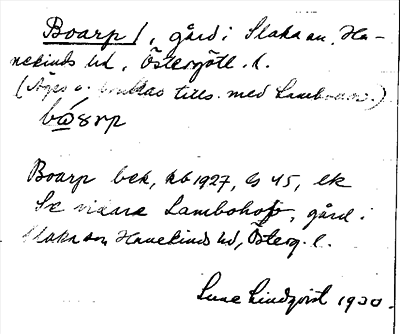 Boarp /, gård i Slaka sn, Ha-
nekinds hd, Östergötl. l.
(Äges o. brukas tills. med Lambohov.)
Boarp bek, kb 1927, Gs 45, ek
Se vidare Lambohov, gård i
Slaka sn Hanekinds hd, Österg. l.
Sune Lindqvist 1930.